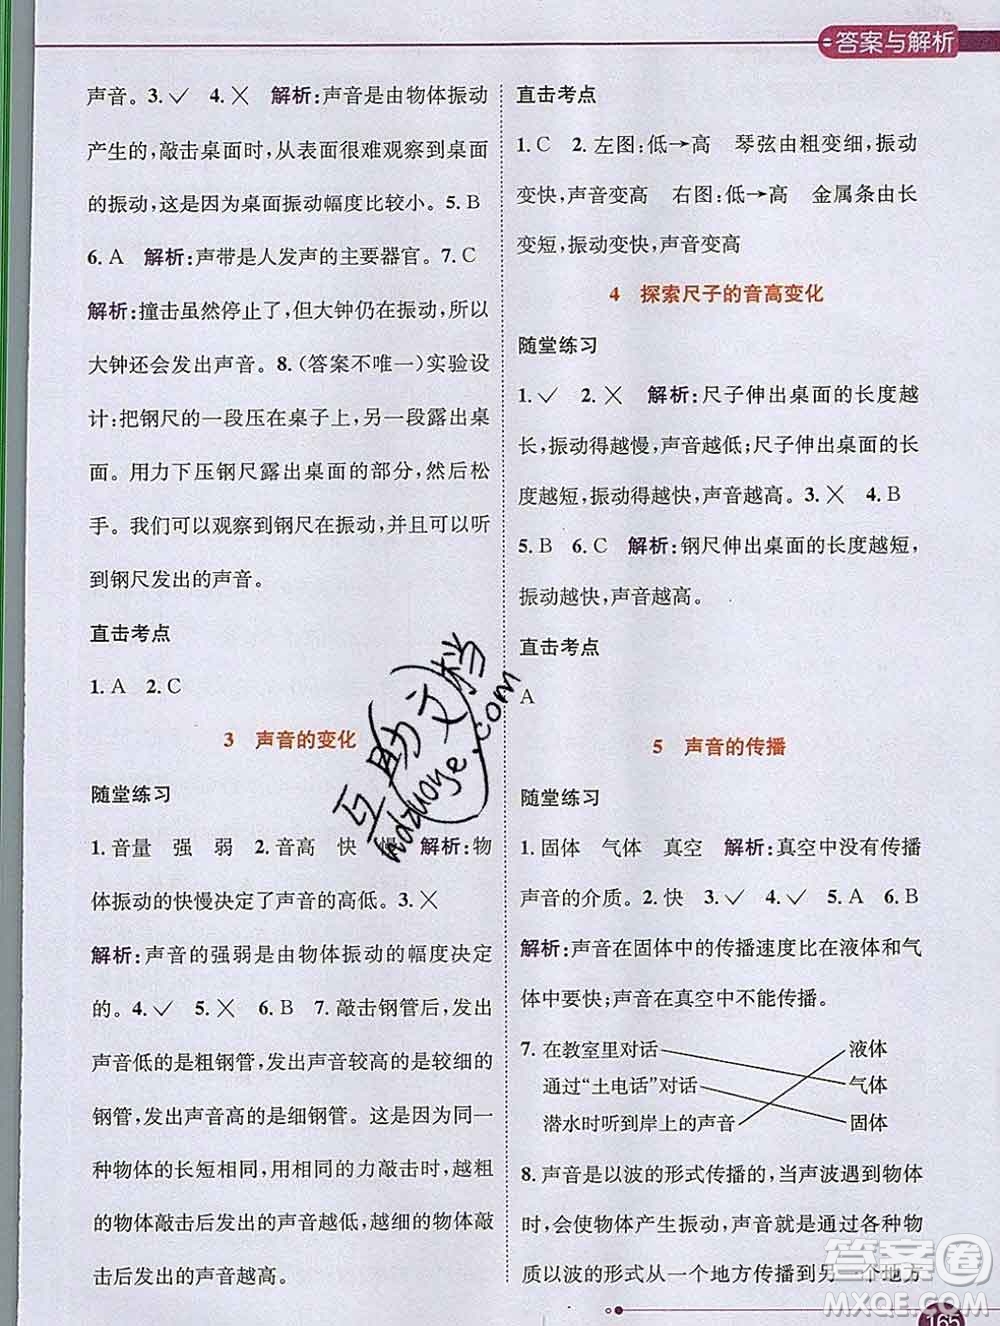 答案与解析
声音。3.✓ 4.✕ 解析:声音是由物体振动
产生的,敲击桌面时,从表面很难观察到桌面
的振动,这是因为桌面振动幅度比较小。5.B
6.A 解析:声带是人发声的主要器官。7.C
解析:撞击虽然停止了,但大钟仍在振动,所以
大钟还会发出声音。8.(答案不唯一)实验设
计:把钢尺的一段压在桌子上,另一段露出桌
面。用力下压钢尺露出桌面的部分,然后松
手。我们可以观察到钢尺在振动,并且可以听
到钢尺发出的声音。
直击考点
1.A 2.C
3 声音的变化
随堂练习
1.音量 强 弱 2.音高 快 解析:物
体振动的快慢决定了声音的高低。3.✕
解析:声音的强弱是由物体振动的幅度决定
的。4.✓ 5.✕ 6.B 7.敲击钢管后,发出
声音低的是粗钢管,发出声音较高的是较细的
钢管,发出声音高的是细钢管。这是因为同一
种物体的长短相同,用相同的力敲击时,越粗
的物体敲击后发出的声音越低,越细的物体敲
击后发出的声音越高。
直击考点
1.C 2.左图:低→高 琴弦由粗变细,振动
变快,声音变高 右图:低→高 金属条由长
变短,振动变快,声音变高
4 探索尺子的音高变化
随堂练习
1.✓ 2.✕ 解析:尺子伸出桌面的长度越
长,振动得越慢,声音越低;尺子伸出桌面的长
度越短,振动得越快,声音越高。3.✕ 4.B
5.B 6.C 解析:钢尺伸出桌面的长度越短,
振动越快,声音越高。
直击考点
A
5 声音的传播
随堂练习
1.固体 气体 真空 解析:真空中没有传播
声音的介质。2.快 3.✓ 4.✓ 5.A 6.B
解析:声音在固体中的传播速度比在液体和气
体中要快;声音在真空中不能传播。
7.在教室里对话 液体
通过“土电话”对话 气体
潜水时听到岸上的声音 固体
8.声音是以波的形式传播的,当声波遇到物体
时,会使物体产生振动,声音就是通过各种物
质以波的形式从一个地方传播到另一个地方
165
互助文档
hdzuoye.com
答案圈
MXQE.COM